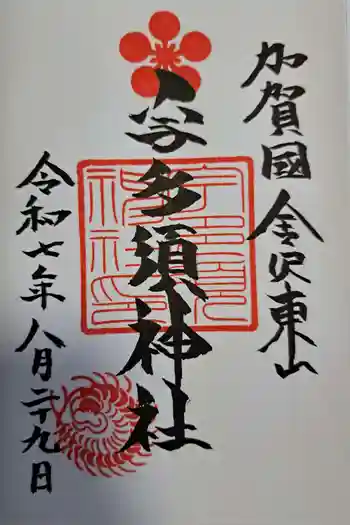 加賀國金沢東山
宇多須神社
令和七年八月二十九日